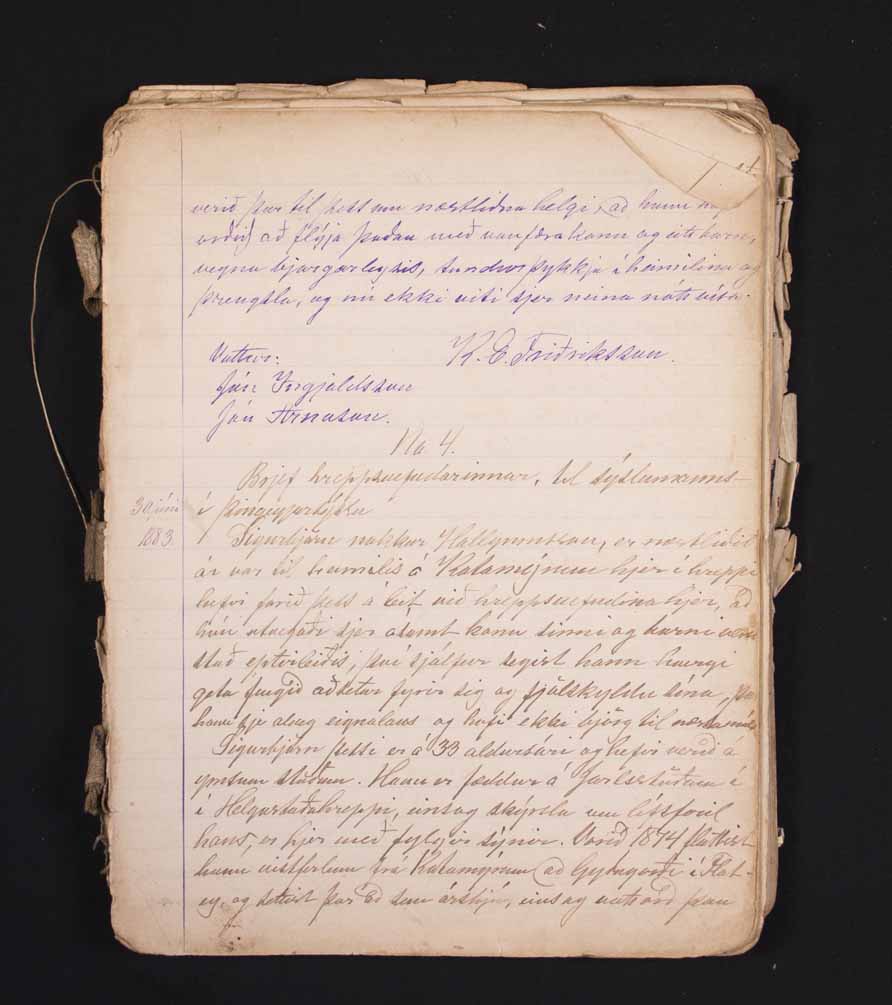 verið þar til þess um næstliðna helgi, að hann
orðið að flýja þaðan með vanfæra konu og eitt barn,
vegna bjargarleysis, sundurþykkju í heimilinu og
þrengsla, og nú ekki viti sjer neina nátt vísa.
Vottar: K. E. Friðriksson.
Jón Ingjaldsson
Jón Arnason.
No 4.
Brjef hreppsnefndarinnar, til sýslumanns
30 júní í Þingeyjarsýslu
1883. Sigurbjörn nokkur Hallgrimsson, er næstliðið
ár var til heimilis á Kalamýrum hjer í hreppi
hefir farið þess á leit við hreppsnefndina hjer, að
hún útvegaði sjer ásamt konu sinni og barni
stað eptirleiðis, því sjálfur segist hann hvergi
geta fengið aðsetur fyrir sig og fjölskyldu sína,
hann sje alveg eignalaus og hafi ekki björg til næsta máls
Sigurbjörn þessi er á 33 aldursári og hefir verið á
ymsum stöðum. Hann er fæddur á Jarlsstöðum í
í Helgastaðahreppi, eins og skýrsla um lífsferil
hans, er hjer með fylgir sýnir. Vorið 1874 fluttist
hann vistferlum frá Kalamýrum að Gyðugerði í Flat-
ey, og settist þar að sem árshjú, eins og vottorð